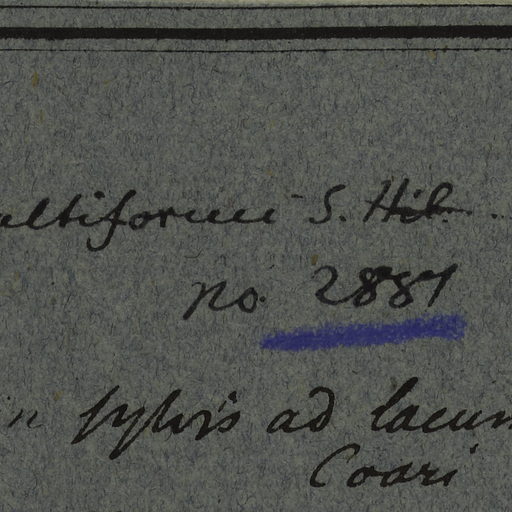 ultiforum S. Hil.
no. 2887
in sylvis ad lacum
Coari